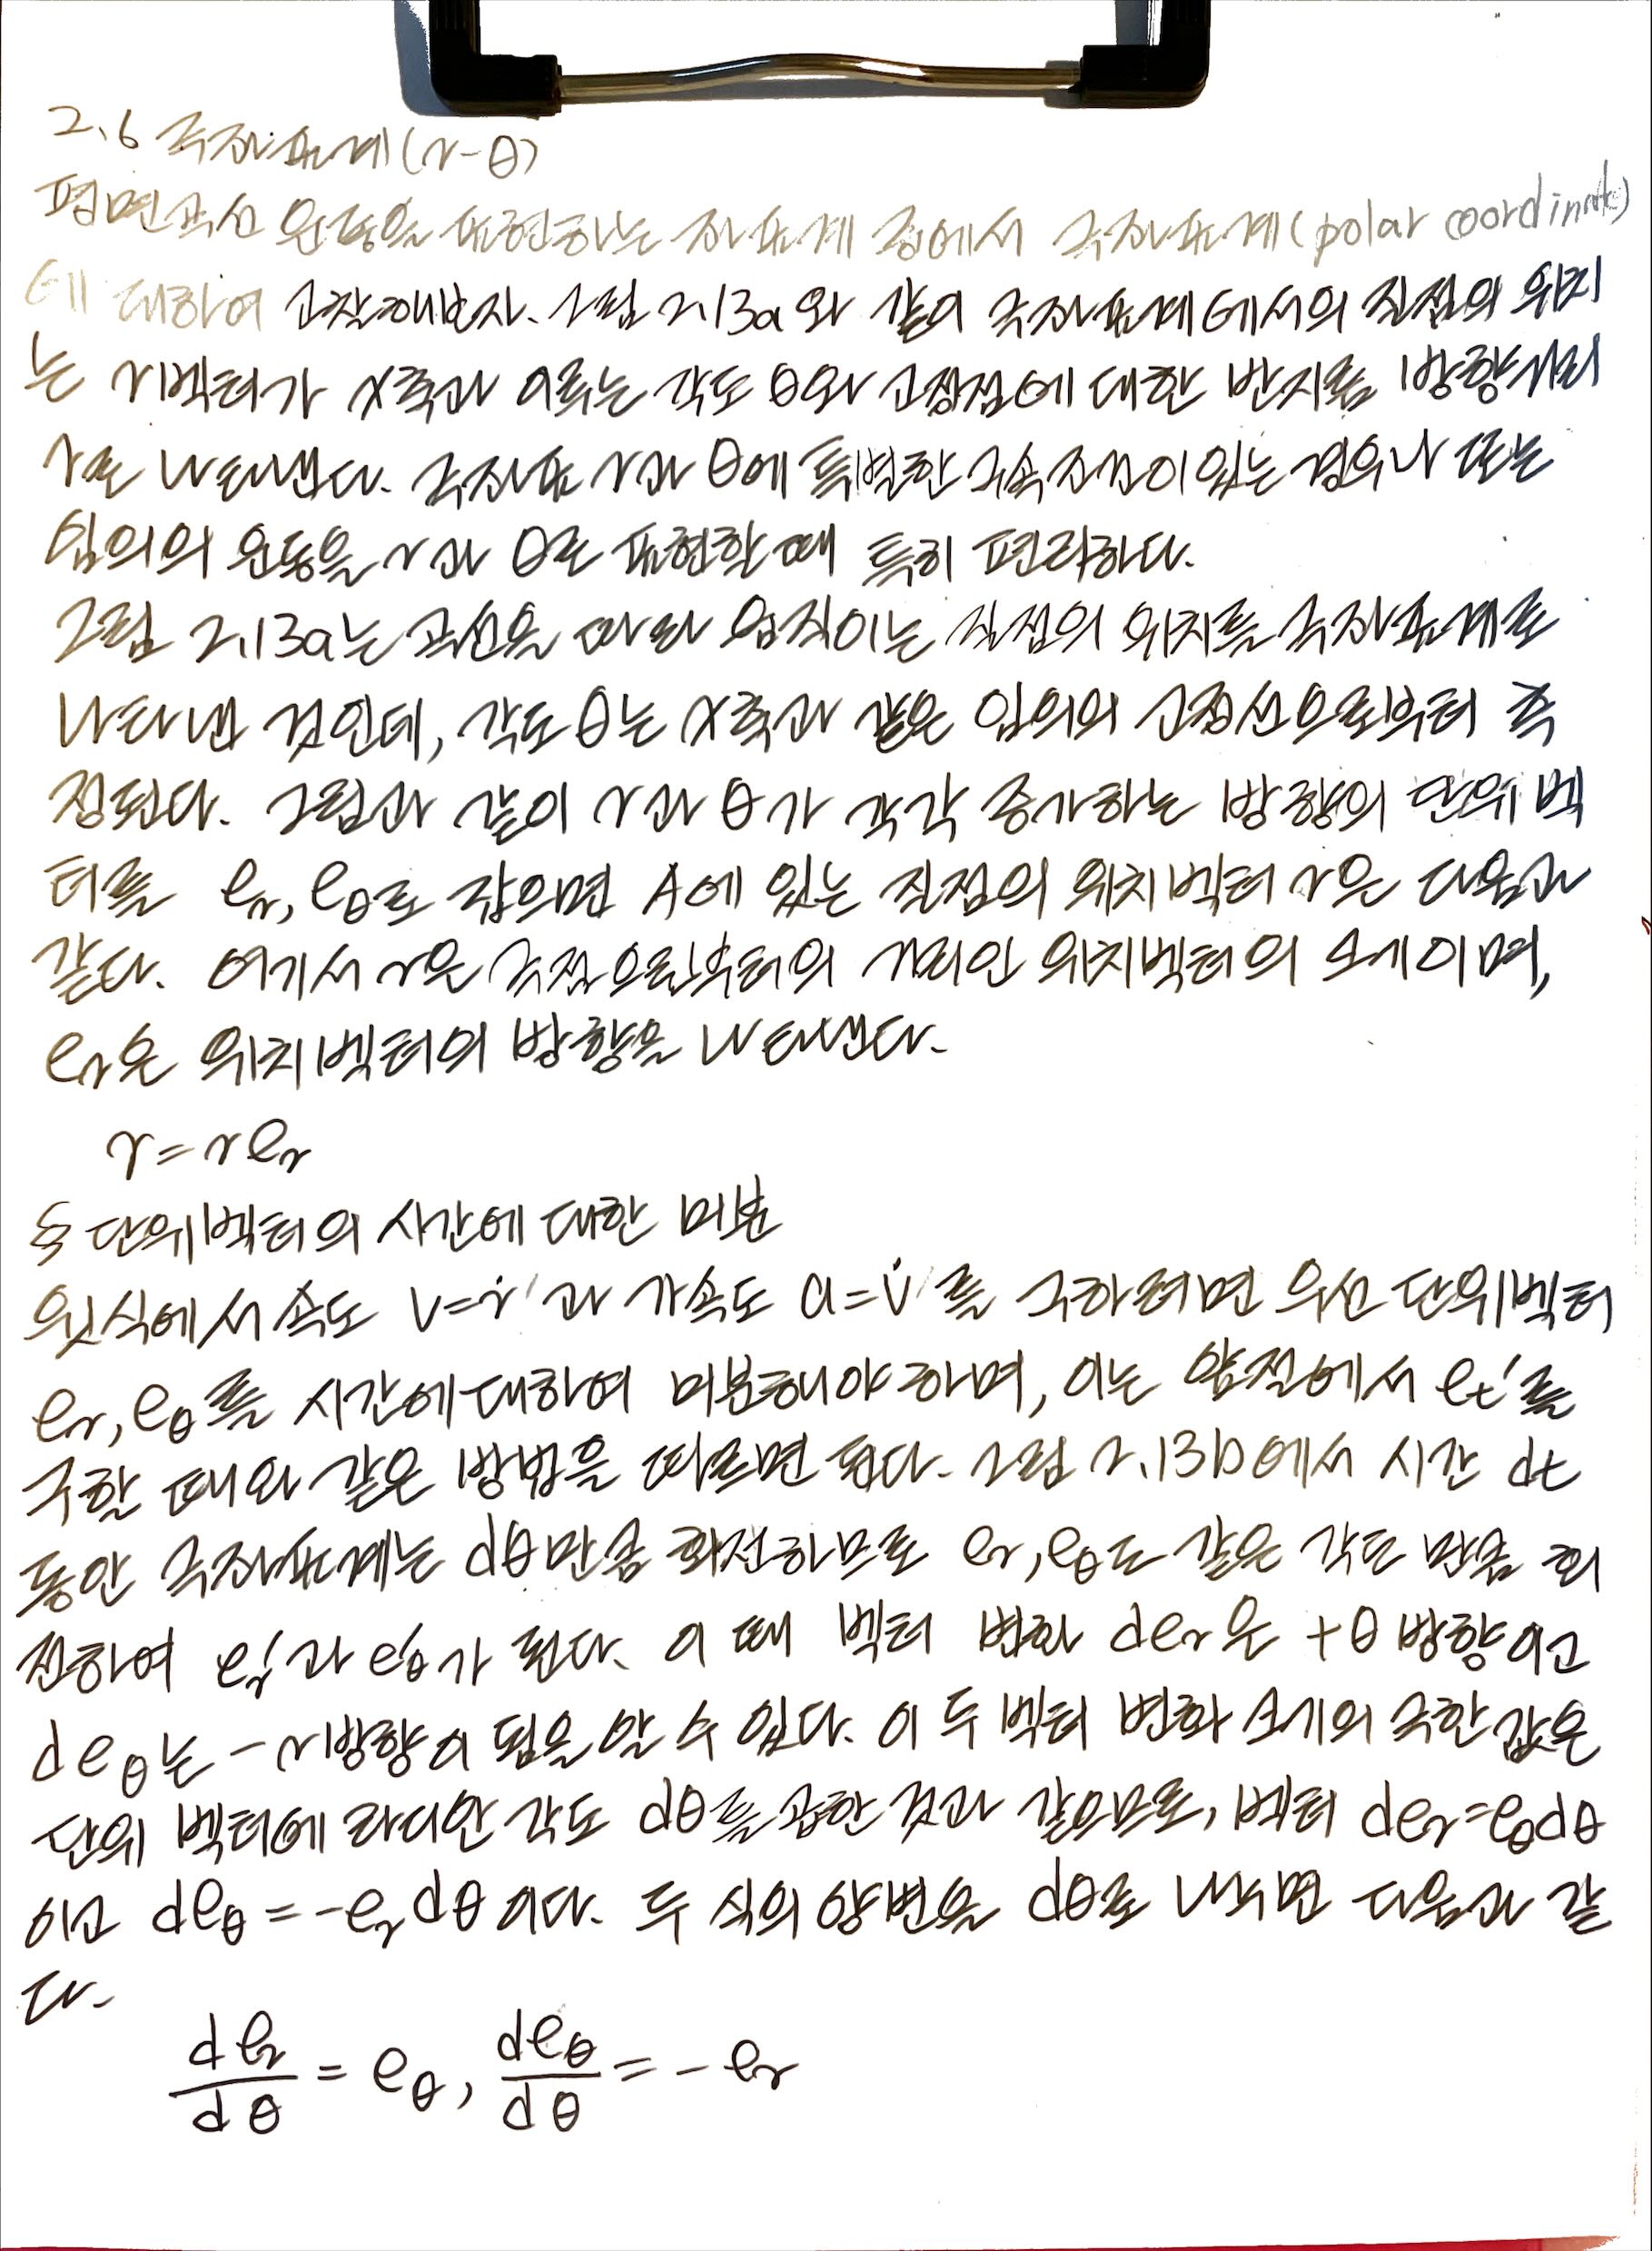 2.6 극좌표계(r-θ)
평면곡선 운동을 표현하는 좌표계 중에서 극좌표계(polar coordinate)
에 대하여 고찰해보자. 그림 2.13a와 같이 극좌표계에서의 질점의 위치
는 r벡터가 x축과 이루는 각도 θ와 고정점에 대한 반지름 방향거리
r로 나타낸다. 극좌표 r과 θ에 특별한 구속조건이 있는 경우나 또는
임의의 운동을 r과 θ로 표현할 때 특히 편리하다.
그림 2.13a는 곡선을 따라 움직이는 질점의 위치를 극좌표계로
나타낸 것인데, 각도 θ는 x축과 같은 임의의 고정선으로부터 측
정된다. 그림과 같이 r과 θ가 각각 증가하는 방향의 단위 벡
터를 er, eθ로 잡으면 A에 있는 질점의 위치벡터 r은 다음과
같다. 여기서 r은 극점으로부터의 거리인 위치벡터의 크기이며,
er은 위치벡터의 방향을 나타낸다.
r=rer
§ 단위벡터의 시간에 대한 미분
윗식에서 속도 v=ṙ과 가속도 a=v̇를 구하려면 우선 단위벡터
er, eθ를 시간에 대하여 미분해야 하며, 이는 앞절에서 et'를
구할 때와 같은 방법을 따르면 된다. 그림 2.13b에서 시간 dt
동안 극좌표계는 dθ만큼 회전하므로 er, eθ도 같은 각도 만큼 회
전하여 e'r과 e'θ가 된다. 이 때 벡터 변화 der은 +θ 방향이고
deθ는 -r방향이 됨을 알 수 있다. 이 두 벡터 변화 크기의 극한 값은
단위 벡터에 라디안 각도 dθ를 곱한 것과 같으므로, 벡터 der=eθdθ
이고 deθ=-erdθ이다. 두 식의 양변을 dθ로 나누면 다음과 같
다.
der/dθ = eθ, deθ/dθ = -er